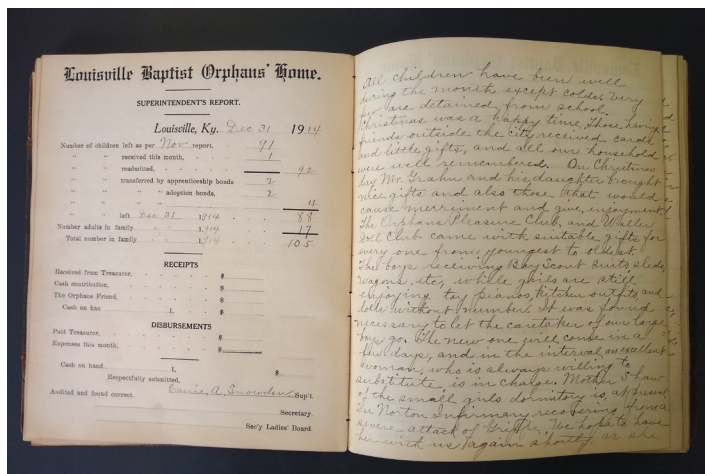 Louisville Baptist Orphans' Home.
SUPERINTENDENT'S REPORT.
Louisville, Ky. Dec 31 1914
Number of children left as per Nov report, 91
" " received this month, 1
" " readmitted, 92
" " transferred by apprenticeship bonds 2
" " " adoption bonds, 2
4
" " left Dec 31 1914 88
Number adults in family 1914 17
Total number in family 1914 105
RECEIPTS
Received from Treasurer, $
Cash contribution, $
The Orphans Friend, $
Cash on hand 1, $
DISBURSEMENTS
Paid Treasurer, $
Expenses this month, $
Cash on hand 1, $
Respectfully submitted,
Audited and found correct. Carrie A. Snowden, Sup't.
Secretary.
Sec'y Ladies' Board.
All children have been well
during the month except colds. Very
few are detained from school.
Christmas was a happy time. Those having
friends outside the city, received cards
and little gifts, and all our household
were well remembered. On Christmas
day Mr. Grahn and his daughter brought
nice gifts and also those that would
cause merriment and give enjoyment.
The Orphans Pleasure Club, and Waller
Doll Club came with suitable gifts for
every one from youngest to oldest.
The boys receiving Boy Scout suits, sleds,
wagons, etc, while girls are still
enjoying toy pianos, kitchen outfits, and
dolls without number. It was found
necessary to let the caretaker of our large
boys go. The new one will come in a
few days, and in the interval, an excellent
woman, who is always willing to
substitute, is in charge. Mother Shaw
of the small girls dormitory is, at present
in Norton Infirmary recovering from a
severe attack of Grippe. We hope to have
her with us again shortly, as she